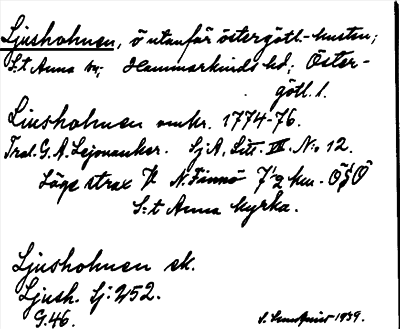 Ljusholmen, ö utanför östergötl.-kusten;
S:t Anna sn; Hammarkinds hd; Öster-
götl. l.
Ljusholmen omkr. 1774-76.
Trol. G. A. Lejonanker. SjA, Litt. VII. No 12.
Läge strax V N. Finnö 7 1/2 km. ÖSÖ
S:t Anna kyrka.
Ljusholmen sk.
Ljush. Sj: 252.
G. 46.
1939.